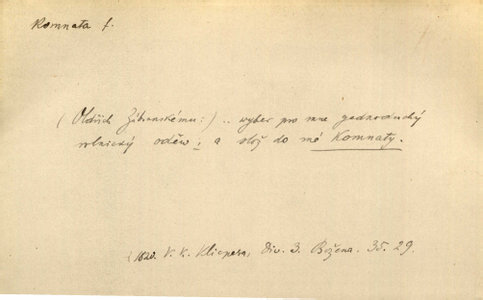 Komnata f.
(Oldřich Zábranskému:) .. wyber pro mne gednoduchý
rolnický oděw; a stůg do mé Komnaty.
(1820. V. K. Klicpera, Div. 3. Božena. 35. 29.